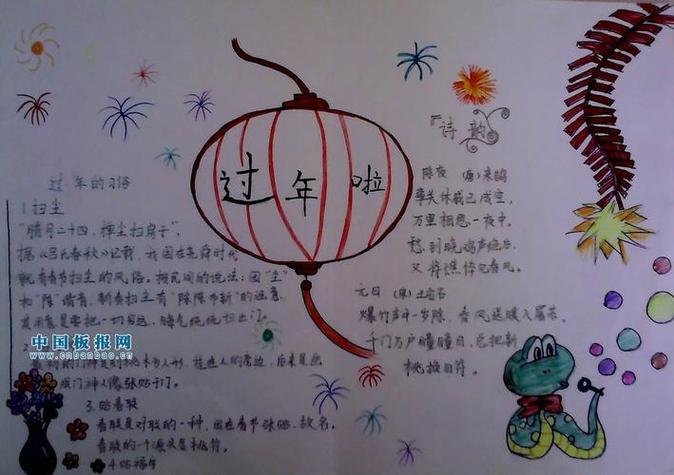 过年啦
过年的习俗
1.扫尘
"腊月二十四,掸尘扫房子",
据《吕氏春秋》记载,我国在尧舜时代
就有春节扫尘的风俗。按民间的说法:因"尘"
和"陈"谐音,新春扫尘有"除陈布新"的涵意,
其用意是要把一切穷运、晦气统统扫出门。
2.
中国板报网
www.cnbanbao.cn
挂在人的旁边,后来是画
成门神人像张贴于门。
3.贴春联
春联是对联的一种,因在春节张贴,故名。
春联的一个源头是桃符。
4.贴福字
『诗韵
除夜 (唐)来鹄
事关休戚已成空,
万里相思一夜中。
愁到晓鸡声绝后,
又将憔悴见春风。
元日 (宋)王安石
爆竹声中一岁除,春风送暖入屠苏。
千门万户曈曈日,总把新
桃换旧符。